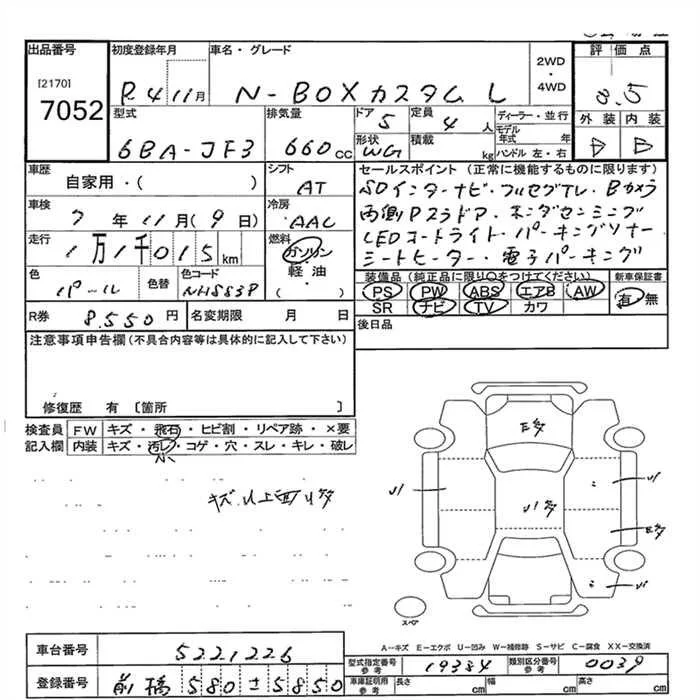 出品番号 初度登録年月 車名・グレード 2WD・4WD 評価点
[2170]
7052
R4 11月 N-BOXカスタム L 3.5
型式 排気量 ドア 5 定員 4人 ディーラー・並行 外装 内装
6BA-JF3 660cc 形状 WG 積載 kg モデル年式 年 ハンドル 左・右 D D
車歴 シフト セールスポイント (正常に機能するものに限ります)
自家用・( ) AT SDインターナビ・フルセグTV・Bカメラ
車検 冷房 両側Pスラドア・ホンダセンシング
7年11月(9日) AAC LEDオートライト・パーキングソナー
走行 燃料 シートヒーター・電子パーキング
1万1千015km ガソリン・軽・油・( )
色 色替 色コード 装備品(純正品に限り○をつけてください) 新車保証書
パール NH883P PS PW ABS エアB AW 有・無
SR ナビ TV カワ
R券 8,550円 名変期限 月 日 後日品
注意事項申告欄(不具合内容等は具体的に記入して下さい)
修復歴 有 〔箇所 〕
検査員 FW キズ・飛石・ヒビ割・リペア跡・×要
記入欄 内装 キズ・汚レ・コゲ・穴・スレ・キレ・破レ
小
キズ.U上面U多
E多
U1
U1
U1多
E多
U1
スペア
A-キズ E-エクボ U-凹み W-補修跡 S-サビ C-腐食 XX-交換済
車台番号 5221226
型式指定番号 参考 19384 類別区分番号 参考 0039
登録番号 前橋 580 ± 5850
車庫証明用 参考 長さ cm 幅 cm 高さ cm